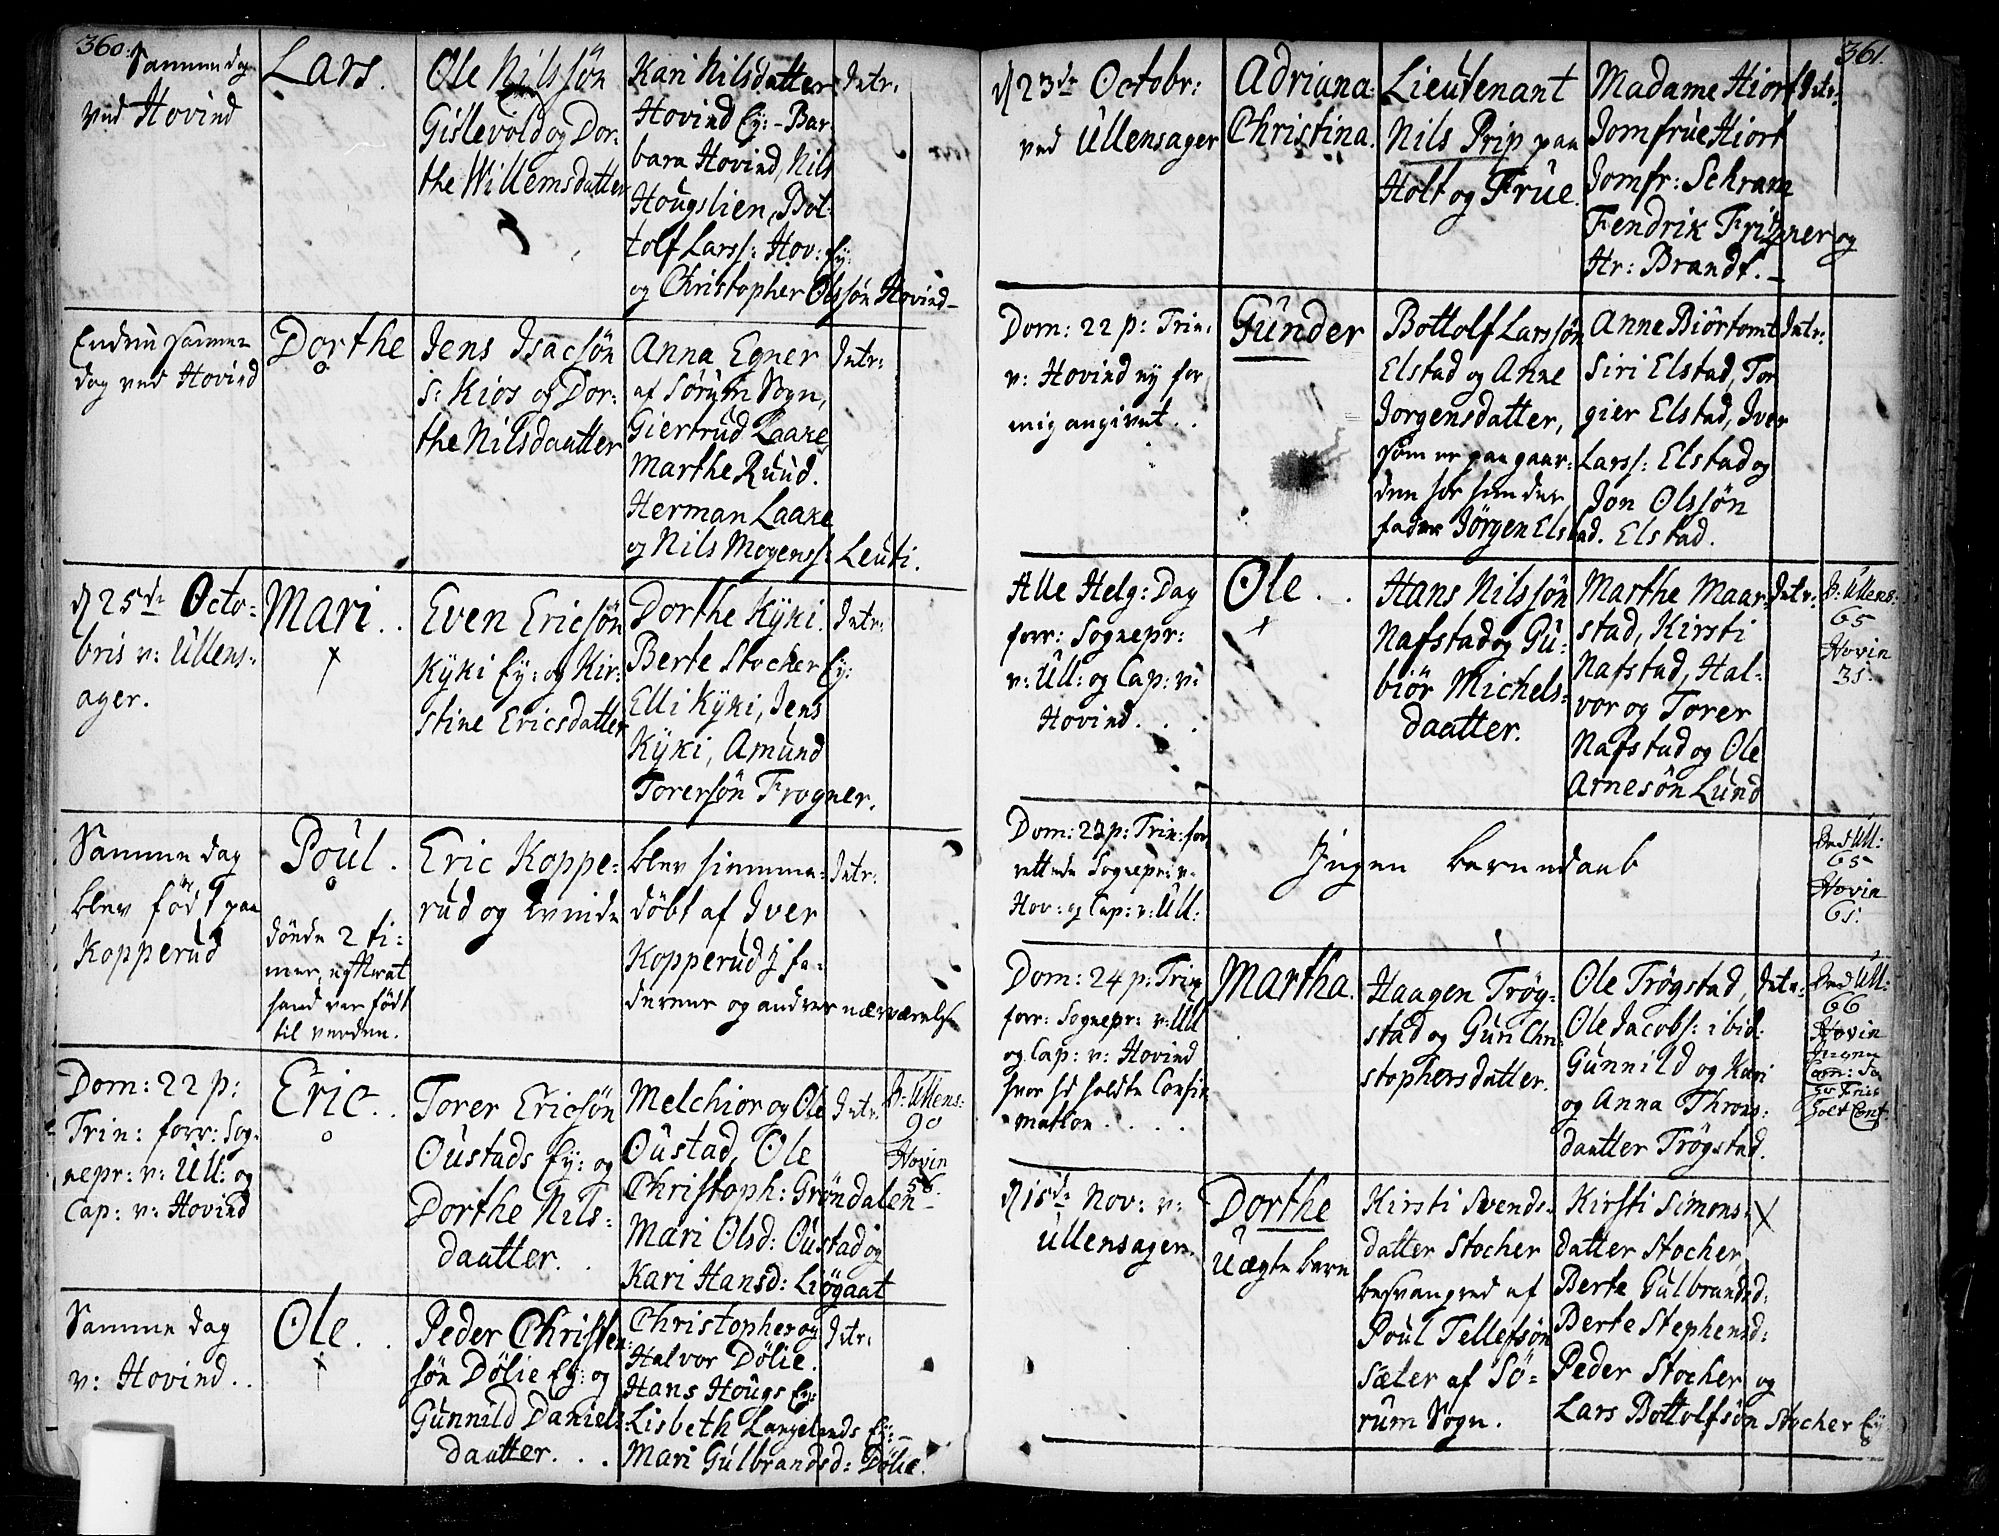 360.
Samme dag
ved Hovind
Lars.
Ole Nilssøn
Gislevold og Dor-
the Willemsdatter
Kari Nilsdatter
Hovind Ey: - Bar-
bara Hovind, Nils
Hougslien, Bot-
tolf Larss: Hov: Ey:
og Christopher Olssøn Hovind -
Intr:
Endnu samme
dag ved Hovind
Dorthe
o
Jens Isacsøn
s: Kios og Dor-
the Nilsdaatter
Anna Egner
af Sørum Sogn,
Giertrud Laake
Marthe Ruud.
Herman Laake
og Nils Mogenss: Leuti.
Intr:
d 25de Octo-
bris v: Ullens-
ager.
Mari. .
x
Even Ericsøn
Kyki Ey: og Kir-
stine Ericsdatter
Dorthe Kyki.
Berte Stocker Ey:
Elli Kyki, Jens
Kyki, Amund
Torersøn Frogner.
Intr:
Samme dag
blev født paa
Kopperud
Poul.
o
døde 2 ti-
mer, efterat
hand var født
til verden.
Eric Koppe-
rud og
blev hiemme-
døbt af Iver
Kopperud j fa-
derens og andres nærværelse
Intr:
Dom: 22 p:
Trin: forr: Sog-
nepr: v: Ull: og
Cap: v: Hovind
Eric. .
o
Torer Ericsøn
Oustads Ey: og
Dorthe Nils-
daatter. .
Melchior og Ole
Oustad, Ole
Christoph: Grøndalen -
Mari Olsd: Oustad og
Kari Hansd: Liøgaat
Intr:
P: Ullens:
90
Hovin
56.
Samme dag
v: Hovind. .
Ole. .
x
Peder Christen-
søn Dølie Ey: og
Gunnild Daniels-
daatter. . .
Christopher og
Halvor Dølie.
Hans Hougs Ey:
Lisbeth Langelands Ey: -
Mari Gulbrandsd: Dølie.
Intr:
361.
d 23de Octobr:
ved Ullensager
Adriana
Christina.
Lieutenant
Nils Prip paa
Holt og Frue.
Madame Hiort
Jomfrue Hiort
Jomfr: Schram
Fendrik Fritzner og
Hr: Brandt. -
Intr:
Dom: 22 p: Trin.
v: Hovind ny for
mig angivet . .
Gunder
Bottolf Larssøn
Elstad og Anne
Jorgensdatter,
som er paa gaar-
den hos hendes
fader Jørgen Elstad.
Anne Biørtomt
Siri Elstad, Tor
gier Elstad, Iver
Larss: Elstad og
Jon Olssøn
Elstad.
Intr:
Alle Helg: Dag
forr: Sognepr:
v: Ull: og Cap: v:
Hovind. . .
Ole. .
x
Hans Nilssøn
Nafstad og Gu-
biør Michels-
daatter.
Marthe Maar-
stad, Kirsti
Nafstad, Hal-
vor og Torer
Nafstad og Ole
Arnesøn Lund
Intr:
P: Ullens:
65
Hovin
35.
Dom: 23 p: Trin: for
rettede Sognepr: v:
Hov: og Cap: v: Ull:
Ingen barnedaab
Ved Ull:
65
Hovin
61.
Dom: 24 p: Trin
forr: Sognepr: v: Ull
og Cap: v: Hovind
hvor ieg holdte Confir
mation . . . .
Martha.
Haagen Trøg-
stad og Guri Chri-
stophersdatter.
Ole Trøgstad,
Ole Jacobs: ibid:
Gunnild og Kari
og Anna Throns-
daatter Trøgstad.
Intr:
Ved Ull:
66
Hovin
Ingen
d 15de Nov: v:
Ullensager.
Dorthe
Uægte barn
Kirsti Svends-
datter Stocher
besvangred af
Poul Tellefsøn
Sæter af Sø-
rum Sogn.
Kirsti Simons-
datter Stocher
Berte Gulbrandsd:
Berte Stephensd:
Peder Stocher og
Lars Bottolfsøn Stocher Ey
x